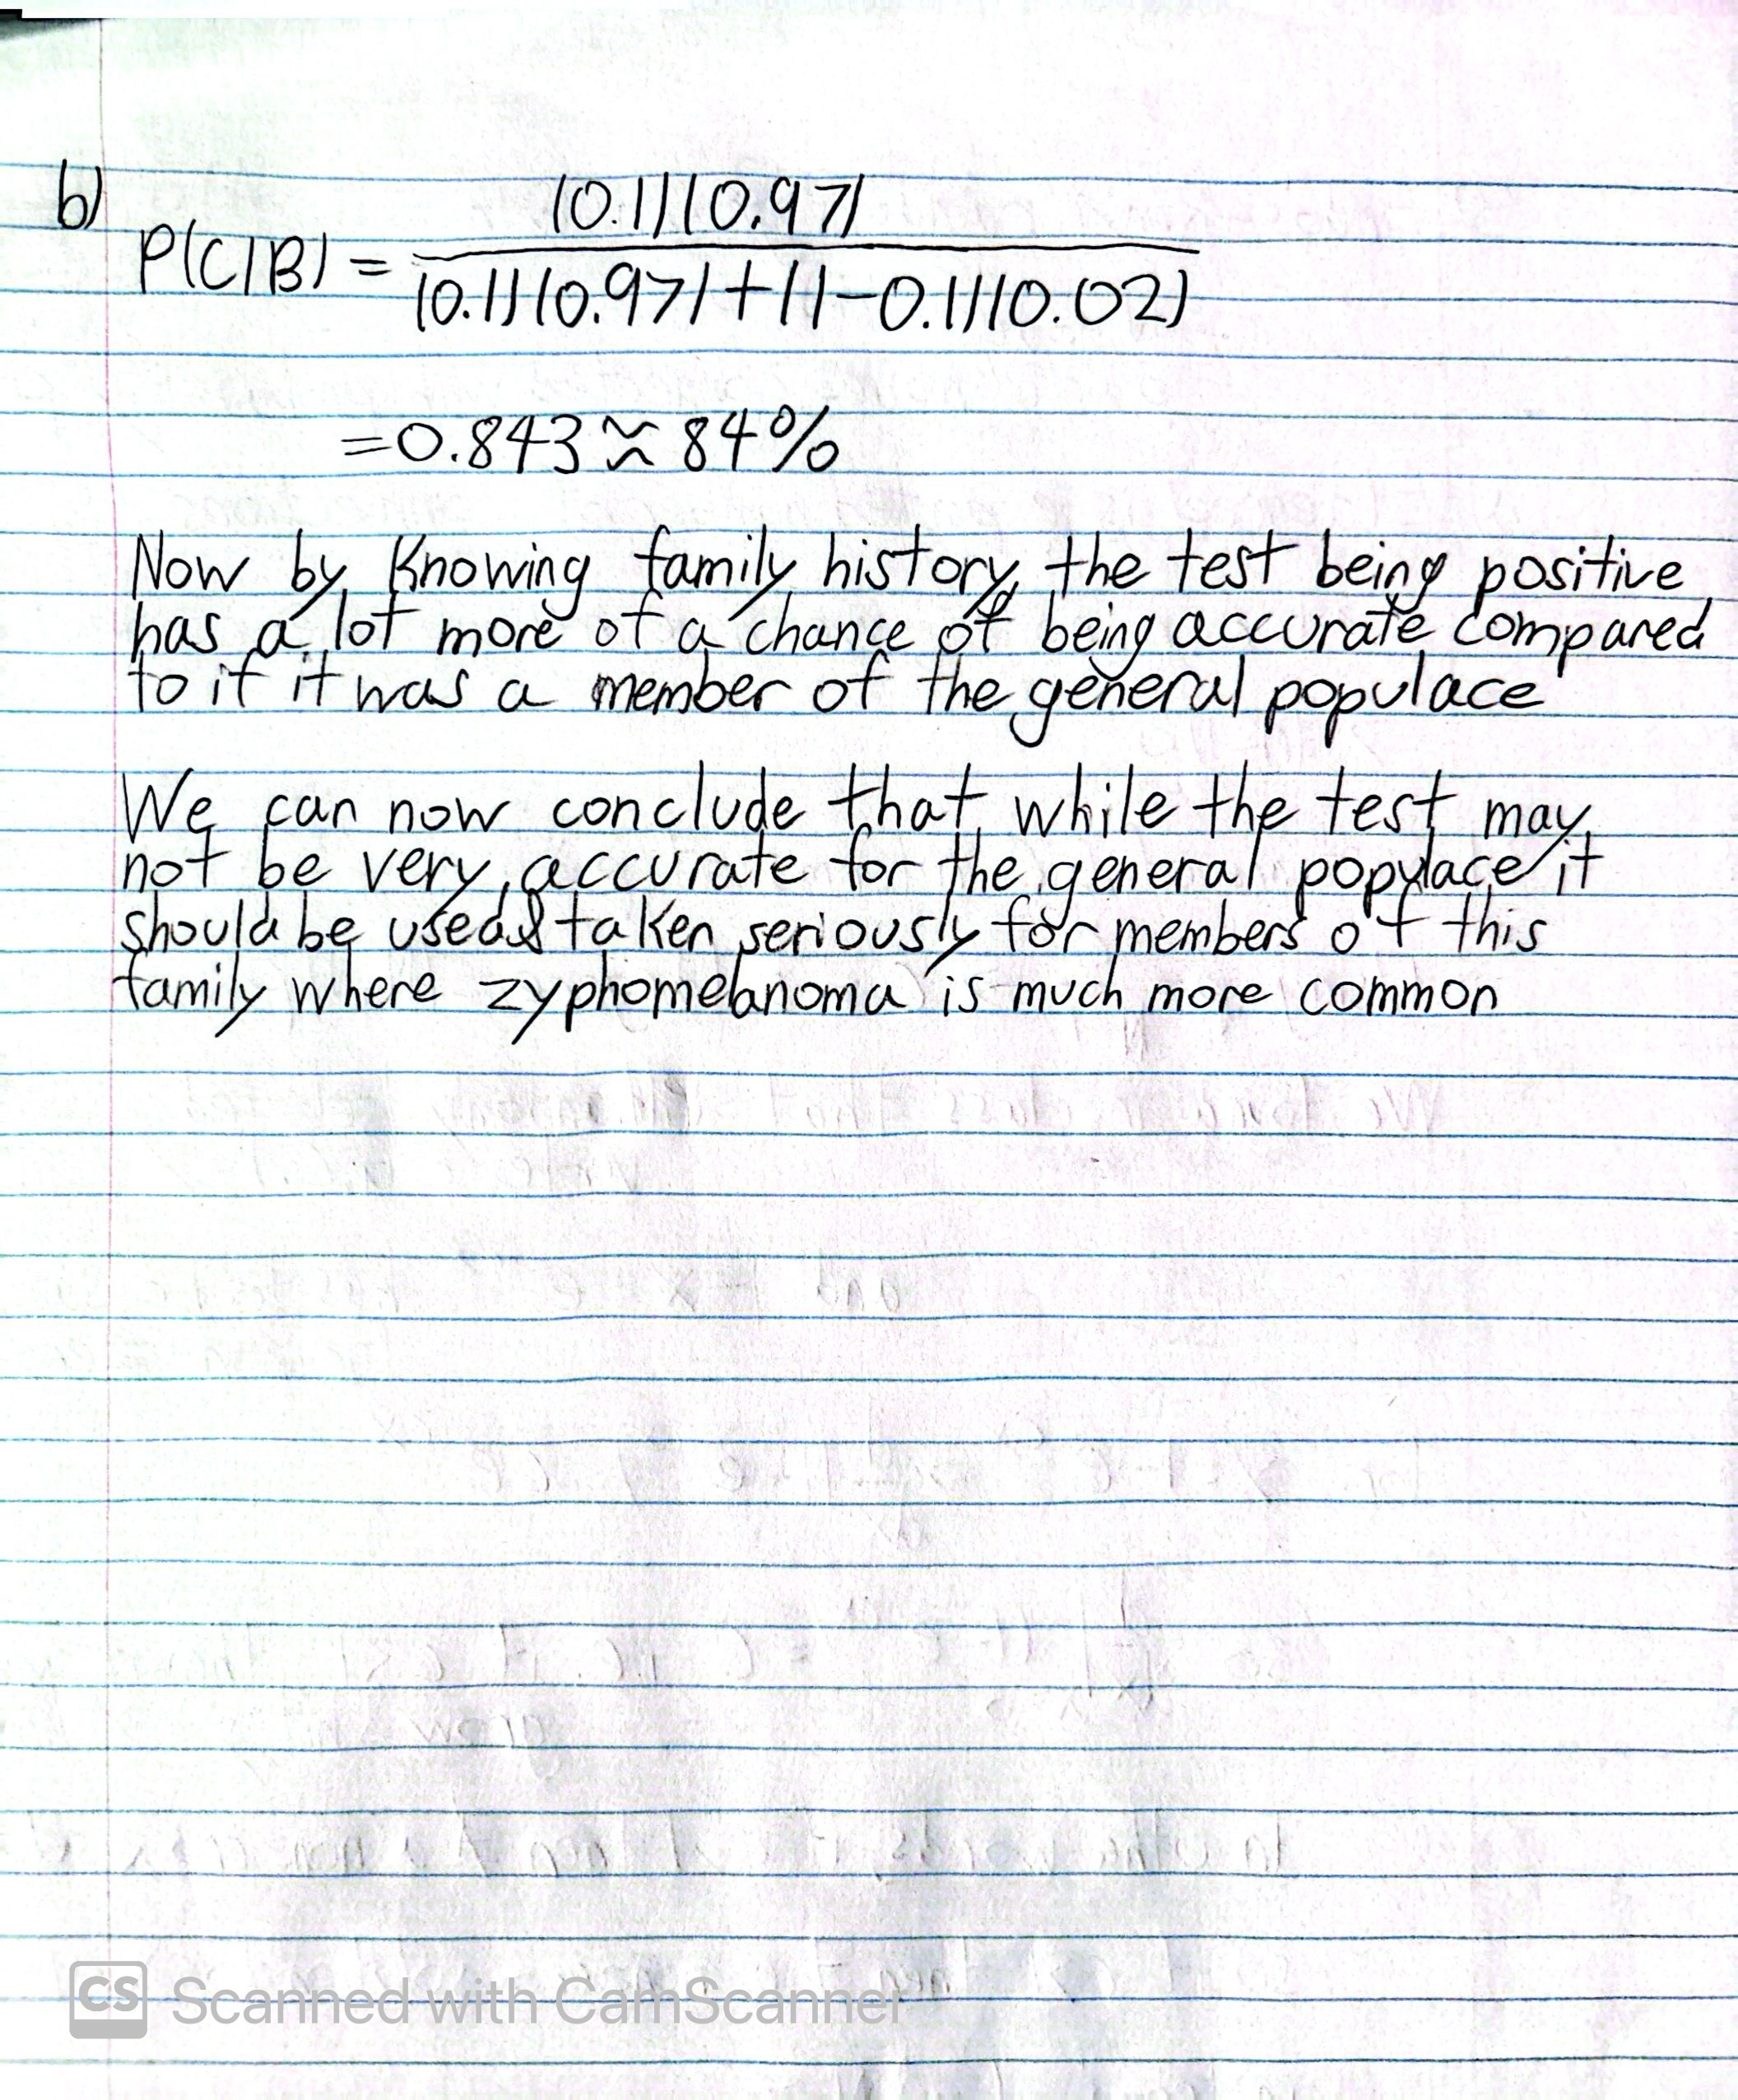 b)
(0.1)(0.97)
P(C|B) = 
(0.1)(0.97)+(1-0.1)(0.02)
=0.843≈84%
Now by knowing family history, the test being positive
has a lot more of a chance of being accurate compared
to if it was a member of the general populace
We can now conclude that while the test may
not be very accurate for the general populace it
should be used & taken seriously for members of this
family where zyphomelanoma is much more common
CS Scanned with CamScanner